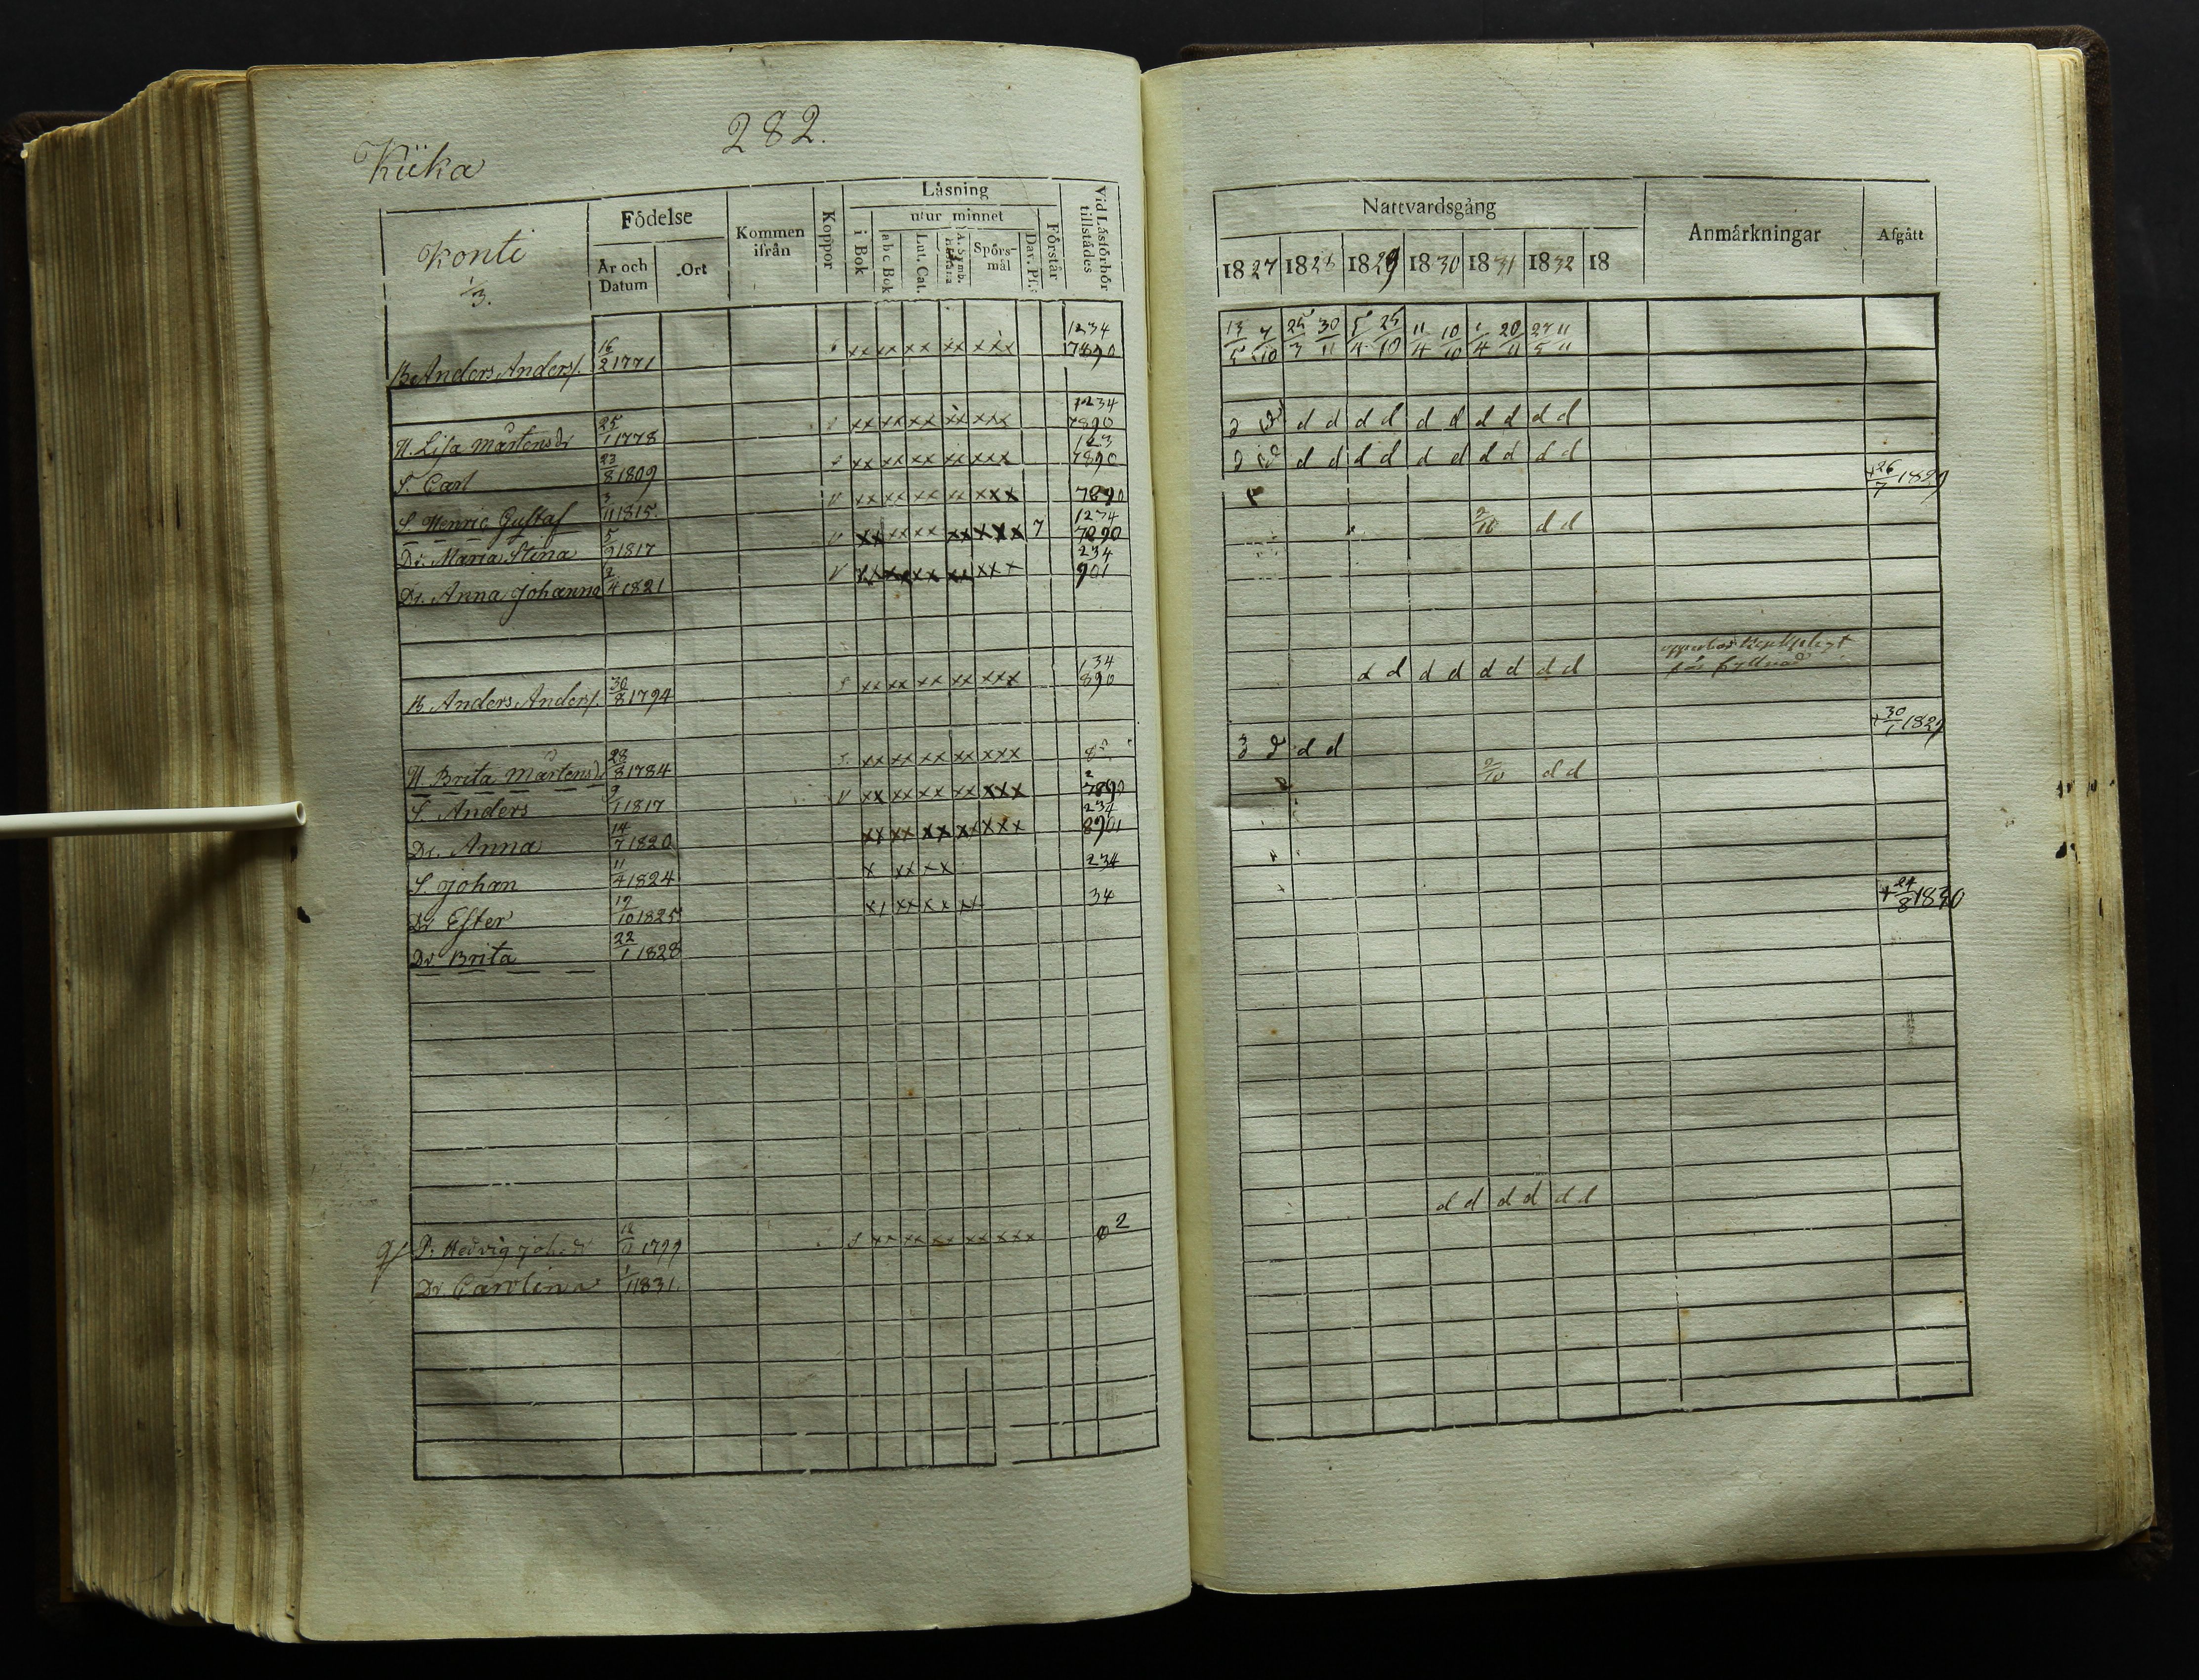 282.
Kiika
Konti
1/3.
Födelse
År och Datum
Ort
Kommen ifrån
Koppor
Läsning
utur minnet
i Bok
abc Bok
Lut. Cat.
A. Symb.
Spörs-mål
Dav. Ps.
Förstår
Vid Läsförhör tillstädes
B. Anders Anders/. 16/2 1771 xx xx xx xx xxx 1234 7890
H. Lisa Mårtensdr 25/1 1778 xx xx xx xx xxx 1234 7890
S. Carl 23/8 1809 xx xx xx xx xxx 123 7890
S. Henric Gustaf 3/11 1815. v xx xx xx xx xxx 7890
Dr. Maria Stina 5/9 1817 v xx xx xx xx xxx 7 1234 7890
Dr. Anna Johanna 2/4 1821 v xx xx xx xx xxx 234 901
B. Anders Anders/. 30/8 1794 s xx xx xx xx xxx 134 890
H. Brita Mårtensdr 28/8 1784 s. xx xx xx xx xxx 8
S. Anders 9/1 1817 v xx xx xx xx xxx 2 7890
Dr. Anna 14/7 1820 xx xx xx xx xxx 234 8901
S. Johan 11/4 1824 x xx xx 234
Dr Ester 17/10 1825 x/ xx xx xx 34
Dr Brita 22/1 1828
P. Hedvig Joh.dr 1799 s xx xx xx xx xxx 0 2
Dr. Carolina 1/1 1831.
Nattvardsgång
1827 1828 1829 1830 1831 1832 18
Anmärkningar
Afgått
13/5 7/10 25/3 30/11 5/4 25/10 11/4 10/10 1/4 20/11 27/5 11/11
d d d d d d d d d d
d d d d d d d d d d
+ 26/7 1829
2/10 d d
d d d d d d d d
för fylleri
+ 30/1 1829
d d
2/10 d d
+ 24/8 1830
d d d d d d